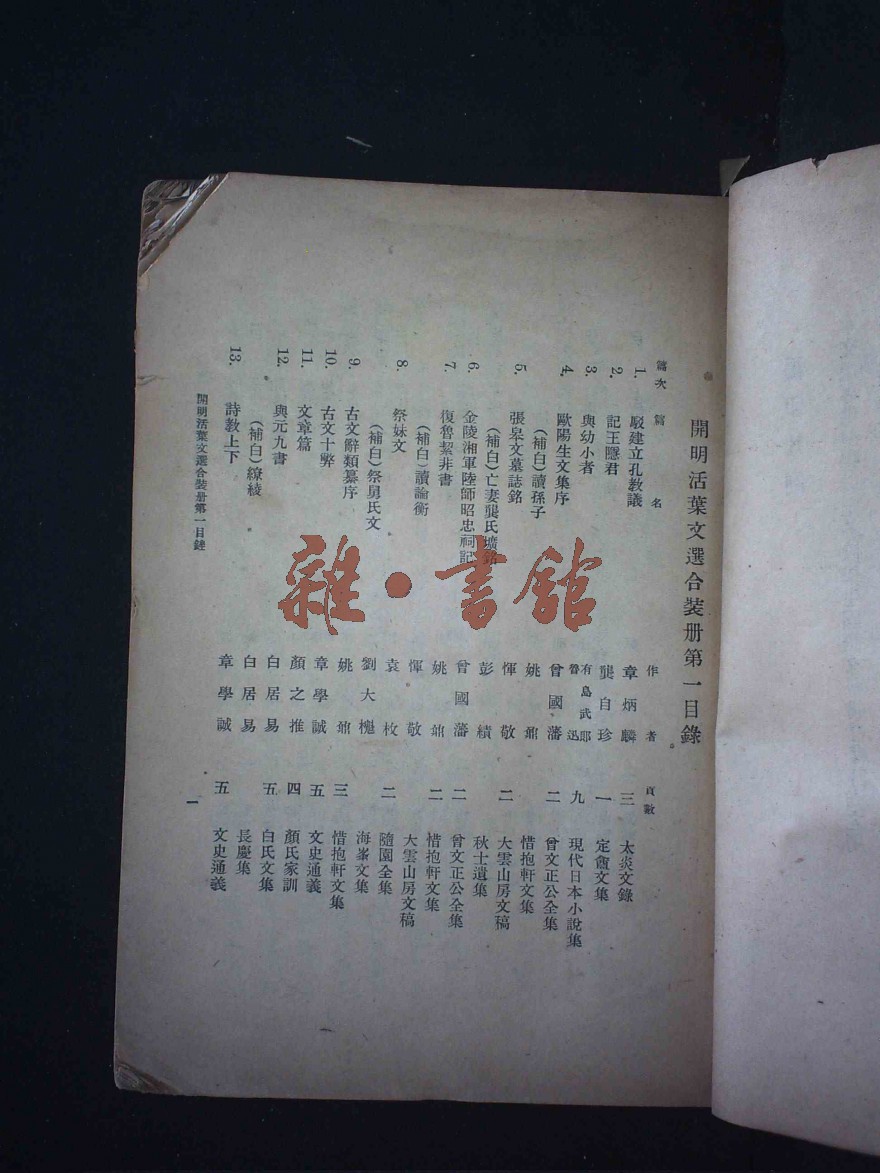 開明活葉文選合裝册第一目錄
篇次 篇名 作者 頁數
1. 駁建立孔教議 章炳麟 三 太炎文錄
2. 記王隱君 龔自珍 一 定盦文集
3. 與幼小者 有島武郎 魯迅 九 現代日本小說集
4. 歐陽生文集序 曾國藩 二 曾文正公全集
(補白)讀孫子 姚鼐 惜抱軒文集
5. 張皋文墓誌銘 惲敬 二 大雲山房文稿
(補白)亡妻龔氏壙銘 彭績 秋士遺集
6. 金陵湘軍陸師昭忠祠記 曾國藩 二 曾文正公全集
7. 復魯絜非書 姚鼐 二 惜抱軒文集
(補白)讀論衡 惲敬 大雲山房文稿
8. 祭妹文 袁枚 二 隨園全集
(補白)祭舅氏文 劉大櫆 海峯文集
9. 古文辭類纂序 姚鼐 三 惜抱軒文集
10. 古文十弊 章學誠 五 文史通義
11. 文章篇 顏之推 四 顏氏家訓
12. 與元九書 白居易 五 白氏文集
(補白)繚綾 白居易 長慶集
13. 詩教上下 章學誠 五 文史通義
開明活葉文選合裝册第一目錄
一
雜·書館